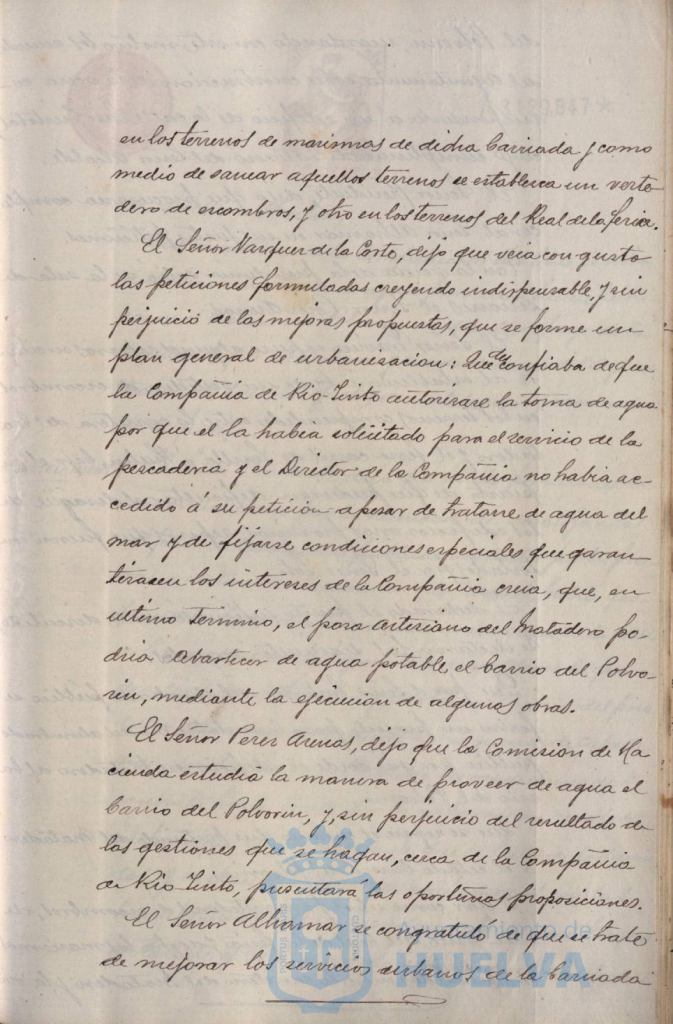 en los terrenos de marismas de dicha barriada y como
medio de sanear aquellos terrenos se establezca un verte-
dero de escombros, y otro en los terrenos del Real de la feria.
El Señor Vazquez de la Corte, dijo que veia con gusto
las peticiones formuladas creyendo indispensable, y sin
perjuicio de las mejoras propuestas, que se forme un
plan general de urbanisacion: Que confiaba de que
la Compañia de Rio-Tinto autorizase la toma de agua
por que el la habia solicitado para el servicio de la
pescaderia y el Director de la Compañia no habia ac-
cedido á su petición apesar de tratarse de agua del
mar y de fijarse condiciones especiales que garan-
tizasen los intereses de la Compañia creia, que, en
ultimo termino, el pozo artesiano del Matadero po-
dria abastecer de agua potable el barrio del Polvo-
rin, mediante la ejecucion de algunas obras.
El Señor Perez Arenas, dijo que la Comision de Ha-
cienda estudia la manera de proveer de agua el
barrio del Polvorin, y, sin perjuicio del resultado de
las gestiones que se hagan, cerca de la Compañia
de Rio-Tinto, presentará las oportunas proposiciones.
El Señor Alhamar se congratuló de que se trate
de mejorar los servicios urbanos de la barriada
HUELVA